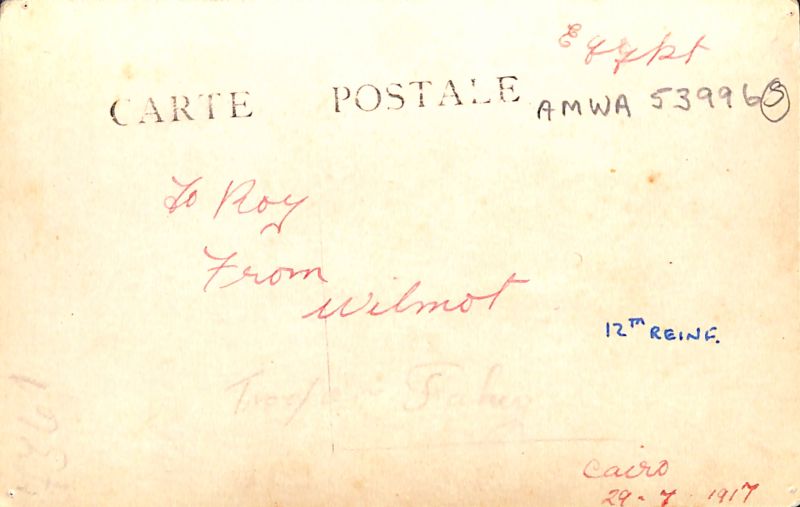 Egypt
CARTE POSTALE
AMWA 53996 S
To Roy
From
Wilmot
12TH REINF.
Cairo
29-7-1917